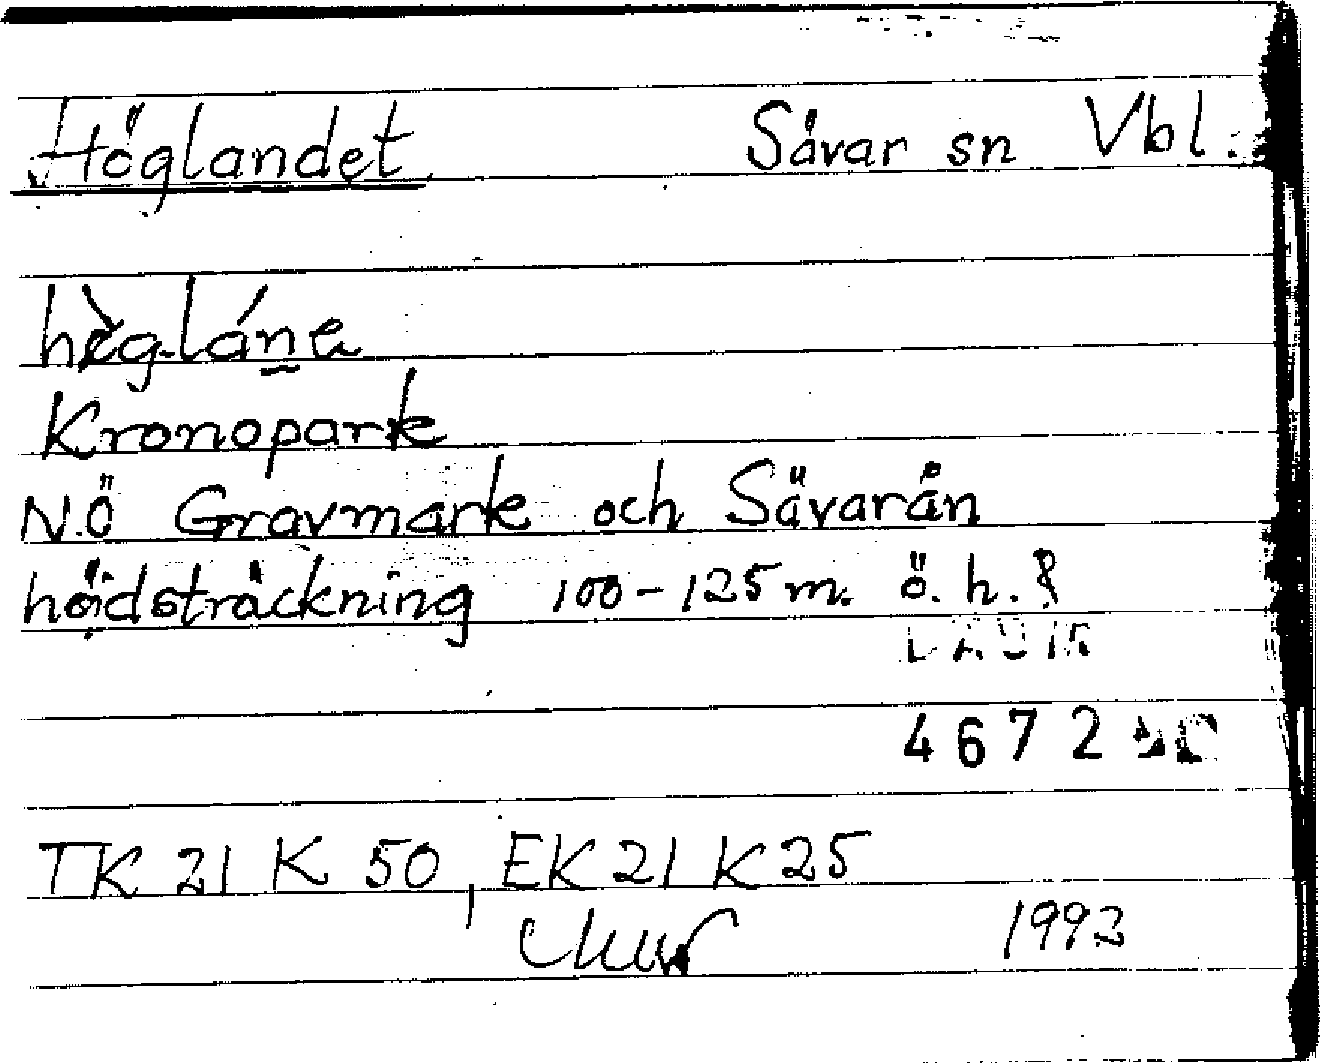 Höglandet Sävar sn Vbl.
Kronopark
N.Ö Gravmark och Sävarån
höjdsträckning 100-125 m. ö. h.
4672
TK 21 K 50, EK 21 K 25
1992